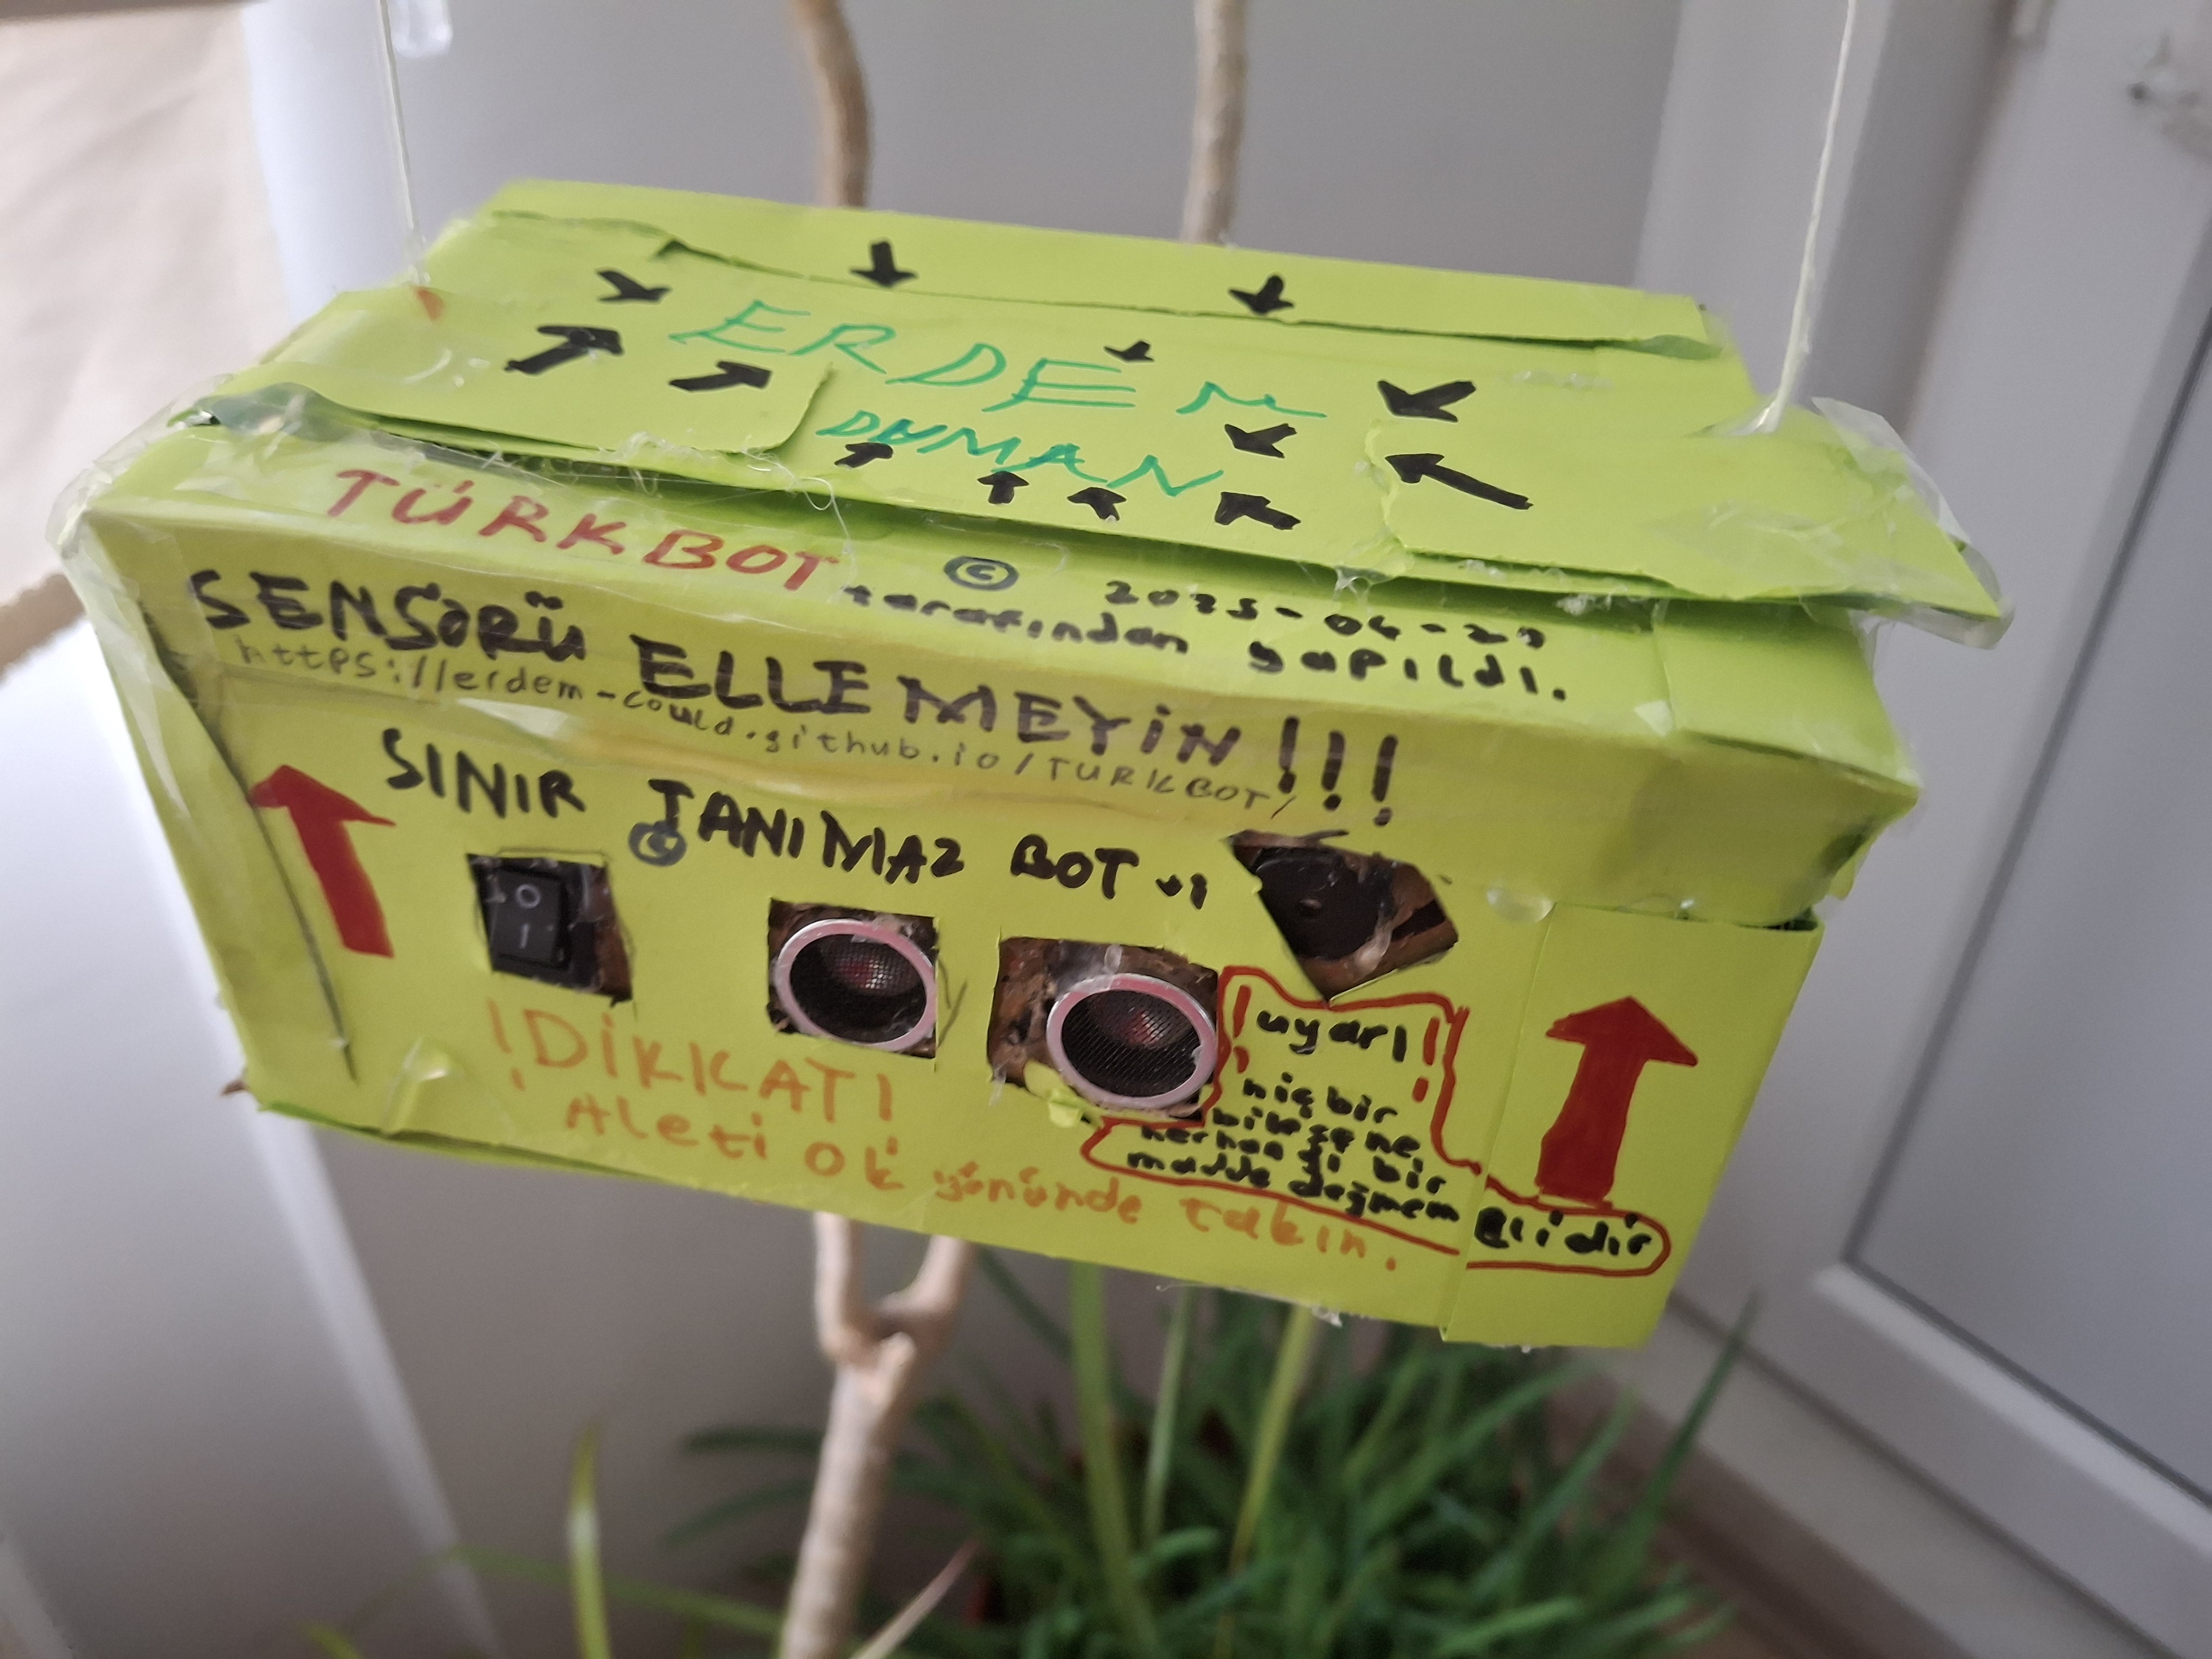 ERDEM
DUMAN
TÜRKBOT © 2025-04-23
tarafından yapıldı.
SENSÖRÜ ELLEMEYİN!!!
https://erdem-could.github.io/TURKBOT/
SINIR TANIMAZ BOT v1
©
O
I
!DİKKAT!
Aleti ok yönünde takın.
!uyarı!
hiç bir
bileşene
herhangi bir
madde değmemelidir